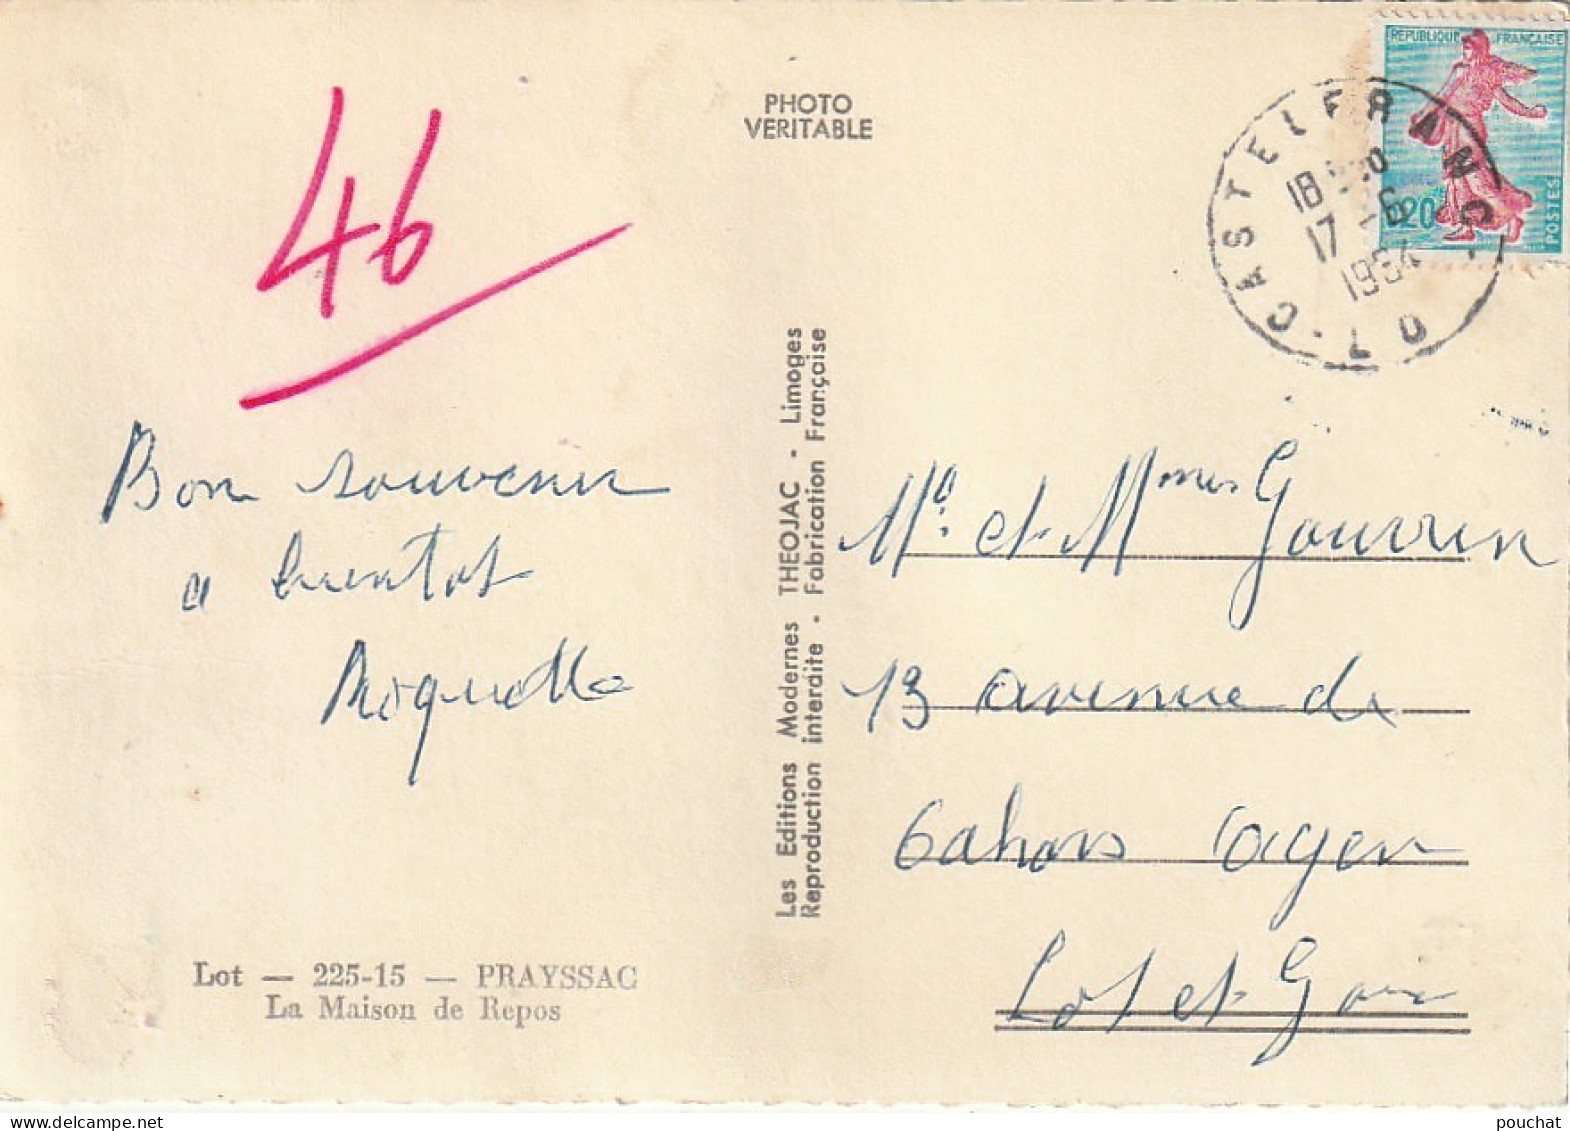 46
PHOTO
VERITABLE
REPUBLIQUE FRANÇAISE
0,20
POSTES
CASTELFRANC - LOT
18
17 -6
1964
Bon souvenir
a bientot
Les Editions Modernes THEOJAC - Limoges
Reproduction interdite - Fabrication Française
Mr. et Mme
13 avenue de
Cahors Agen
Lot et Gar
Lot — 225-15 — PRAYSSAC
La Maison de Repos
delcampe.net
pouchat